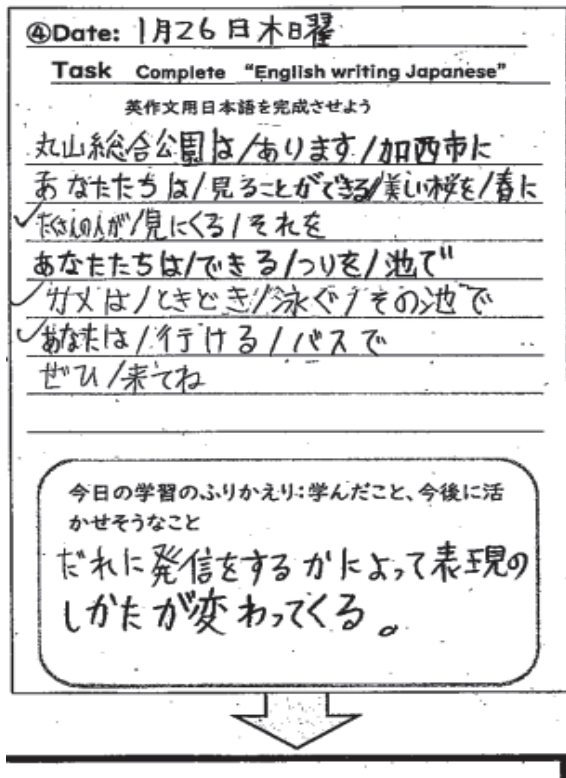 ④Date: 1月26日木日曜
Task Complete “English writing Japanese”
英作文用日本語を完成させよう
丸山総合公園は/あります/加西市に
あなたたちは/見ることができる/美しい桜を/春に
✓たくさんの人が/見にくる/それを
あなたたちは/できる/つりを/池で
✓カメは/ときどき/泳ぐ/その池で
✓あなたは/行ける/バスで
ぜひ/来てね
今日の学習のふりかえり:学んだこと、今後に活
かせそうなこと
だれに発信をするかによって表現の
しかたが変わってくる。